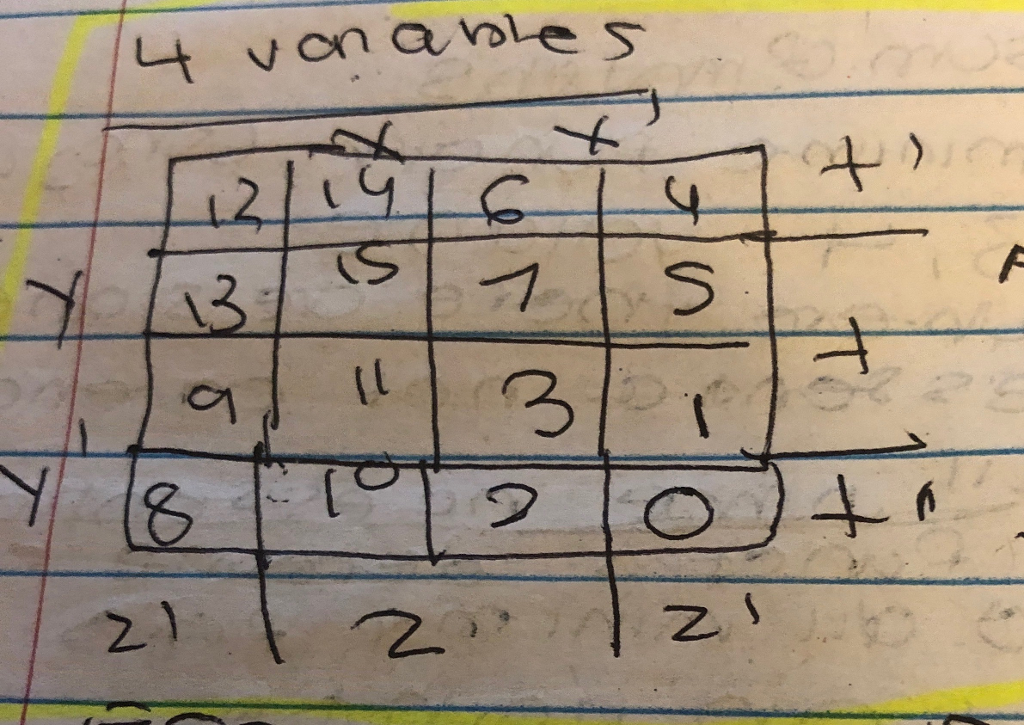 4 variables
x x'
12 14 6 4 t'
y 13 15 7 5
t
9 11 3 1
y' 8 10 2 0 t'
z' z z'